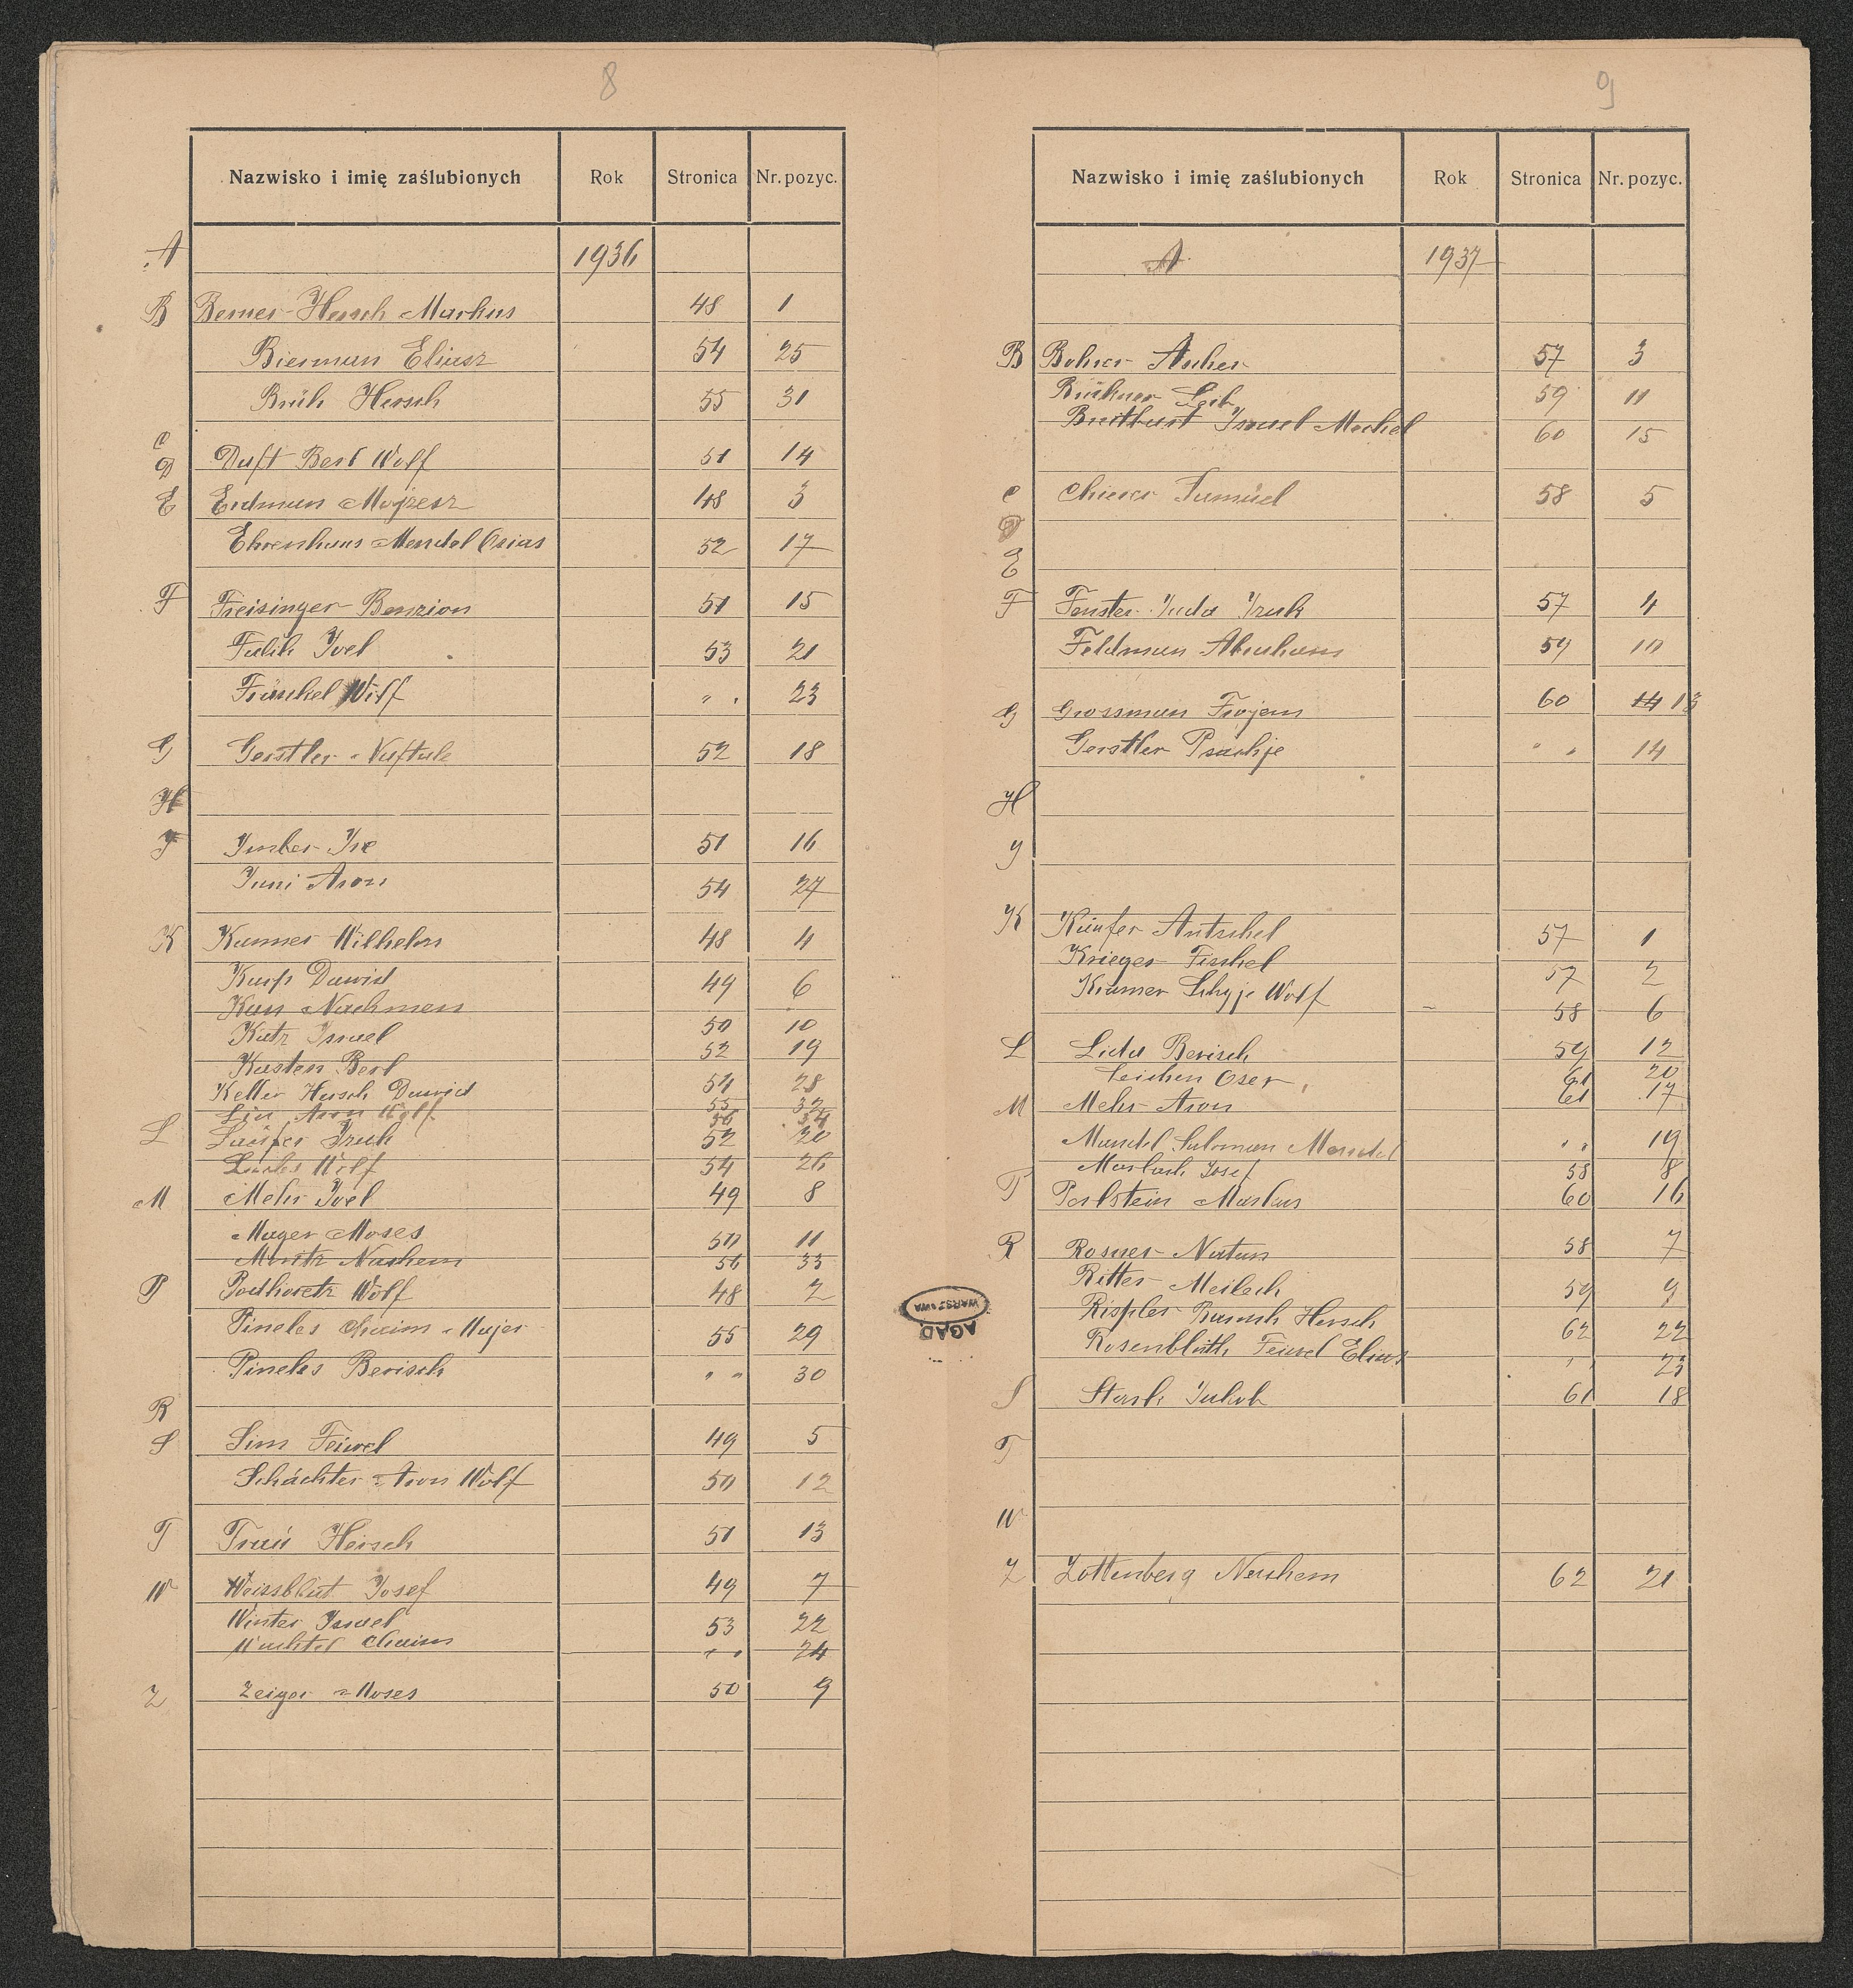 8
Nazwisko i imię zaślubionych Rok Stronica Nr. pozyc.
A 1936
B Berner Hersch Markus 48 1
Bierman Eliasz 54 25
Brüh Hersch 55 31
C
D Duft Berl Wolf 51 14
E Erdman Mojżesz 48 3
Ehrenhaus Mendel Osias 52 17
F Freisinger Benzion 51 15
Falik Joel 53 21
Fränkel Wolf " . 23
G Gerstler Naftule 52 18
H
J Imber 51 16
Juni Aron 54 27
K Kanner Wilhelm 48 4
Karp Dawid 49 6
Kan Nachmen 50 10
Katz Israel 52 19
Kasten Berl 54 28
Keller Hersch Dawid 55 32
Aron Wolf 56 34
L 52 20
Wolf 54 26
M Mehr Joel 49 8
Mager Moses 50 11
Mintz Nachem 56 33
P Podhoretz Wolf 48 2
Pineles Chaim Majer 55 29
Pineles Berisch " " 30
R
S Sim Feiwel 49 5
Schächter Aron Wolf 50 12
T Trau Hersch 51 13
W Weissblut Josef 49 7
Winter Israel 53 22
Wachtel Chaim " " 24
Z Zeiger Moses 50 9
9
Nazwisko i imię zaślubionych Rok Stronica Nr. pozyc.
A 1937
B Bohrer Ascher 57 3
Brükner Leib 59 11
Breitbart Israel Mechel 60 15
C Chierer Samuel 58 5
D
E
F Fenster Juda 57 4
Feldman Abraham 59 10
G Grossman Frojem 60 14 13
Gerstler Psachje " " 14
H
J
K Käufer Antschel 57 1
Krieger Fischel 57 2
Kramer Schyje Wolf 58 6
L Lida Berisch 59 12
Leichen Oser 61 20
M Mehr Aron 61 17
Mandel Salomon Mendel " " 19
Marbach Josef 58 8
P Perlstein Markus 60 16
R Rosner Natan 58 7
Ritter Meilech 59 9
Rispler Baruch Hersch 62 22
Rosenblüth Feiwel Elias " " 23
S Jakob 61 18
T
W
Z Zottenberg Nachem 62 21
AGAD
WARSZAWA